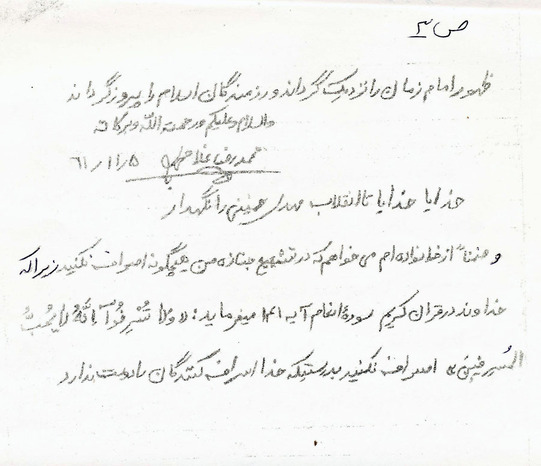 ص ۳
ظهور امام زمان را نزدیک گرداند و رزمندگان اسلام را پیروز گرداند
والسلام وعلیکم ورحمت الله وبرکاته
محمد رضا ۶۱/۱۱/۵
خدایا خدایا تا انقلاب مهدی خمینی را نگهدار
و ضمناً از خانواده ام می خواهم که در تشییع جنازه من هیچگونه اصراف نکنید زیرا که
خداوند در قران کریم سورۀ انعام آیه ۱۴۱ میفرماید: «وَلا تُسْرِفُوٓا اِنَّهُ لا یُحِبُّ
المُسرِفینَ» اسراف نکنید بدرستیکه خدا اسراف کنندگان را دوست ندارد